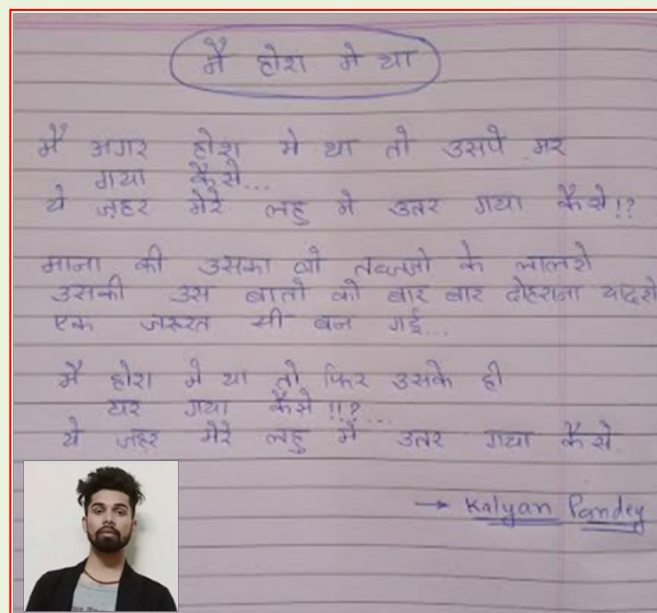 मै होश मे था
मैं अगर होश मे था तो उसपे मर
गया कैसे...
ये ज़हर मेरे लहु मे उतर गया कैसे!?
माना की उसका वो तवज्जो के लालशे
उसकी उस बातो को बार बार दोहराना यादशे
एक जरूरत सी बन गई...
मै होश मे था तो फिर उसके ही
घर गया कैसे!!?...
ये जहर मेरे लहु में उतर गया कैसे
→ Kalyan Pandey